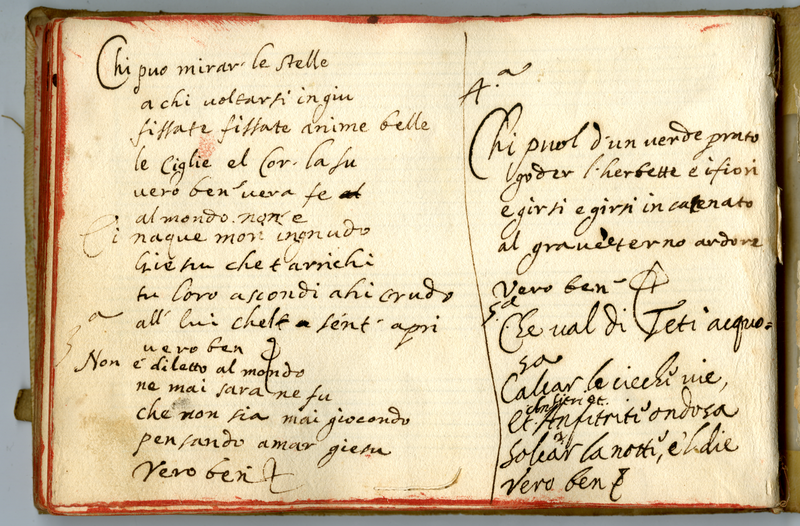 Chi puo mirar le stelle
a chi voltarsi in giu
fissate fissate anime belle
le Ciglie el Cor la su
vero ben vera fe
al mondo non e
Ci naque mori ingnudo
Giesu che t'arrichi
tu l'oro ascondi ahi crudo
all' lui che a sent' apri
vero ben
3.a
Non é diletto al mondo
ne mai sara ne fu
che non sia mai giocondo
pensando amar giesu
Vero ben
4.a
Chi puol d'un verde prato
goder l'herbette e i fiori
e girsi e girsi in catenato
al grave eterno ardore
Vero ben
5.a
Che val di Teti acquo=
sa
Calcar le vie,
et Anfitriti ondosa
Solcar la notti, e'l die
Vero ben